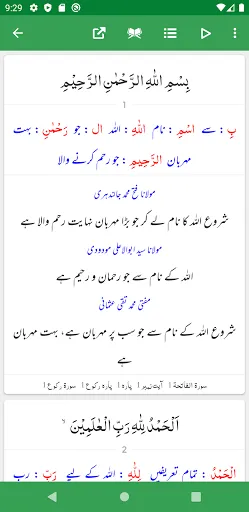 9:29
بِسْمِ اللهِ الرَّحْمٰنِ الرَّحِيْمِ
1
بِ : سے اسْمِ : نام اللهِ : اللہ ال : جو رَحْمٰنِ : بہت
مہربان الرَّحِيْمِ : جو رحم کرنے والا
مولانا فتح محمد جالندہری
شروع اللہ کا نام لے کر جو بڑا مہربان نہایت رحم والا ہے
مولانا سید ابوالاعلی مودودی
اللہ کے نام سے جو رحمان و رحیم ہے
مفتی محمد تقی عثمانی
شروع اللہ کے نام سے جو سب پر مہربان ہے، بہت مہربان
ہے
سورۃ الفاتحۃ ا آیت نمبر ا پارہ ا پارہ رکوع ا سورۃ رکوع ا
اَلْحَمْدُ لِلّٰهِ رَبِّ الْعٰلَمِيْنَ ۙ
2
الْحَمْدُ : تمام تعریفیں لِلّٰهِ : اللہ کے لیے رَبِّ : رب